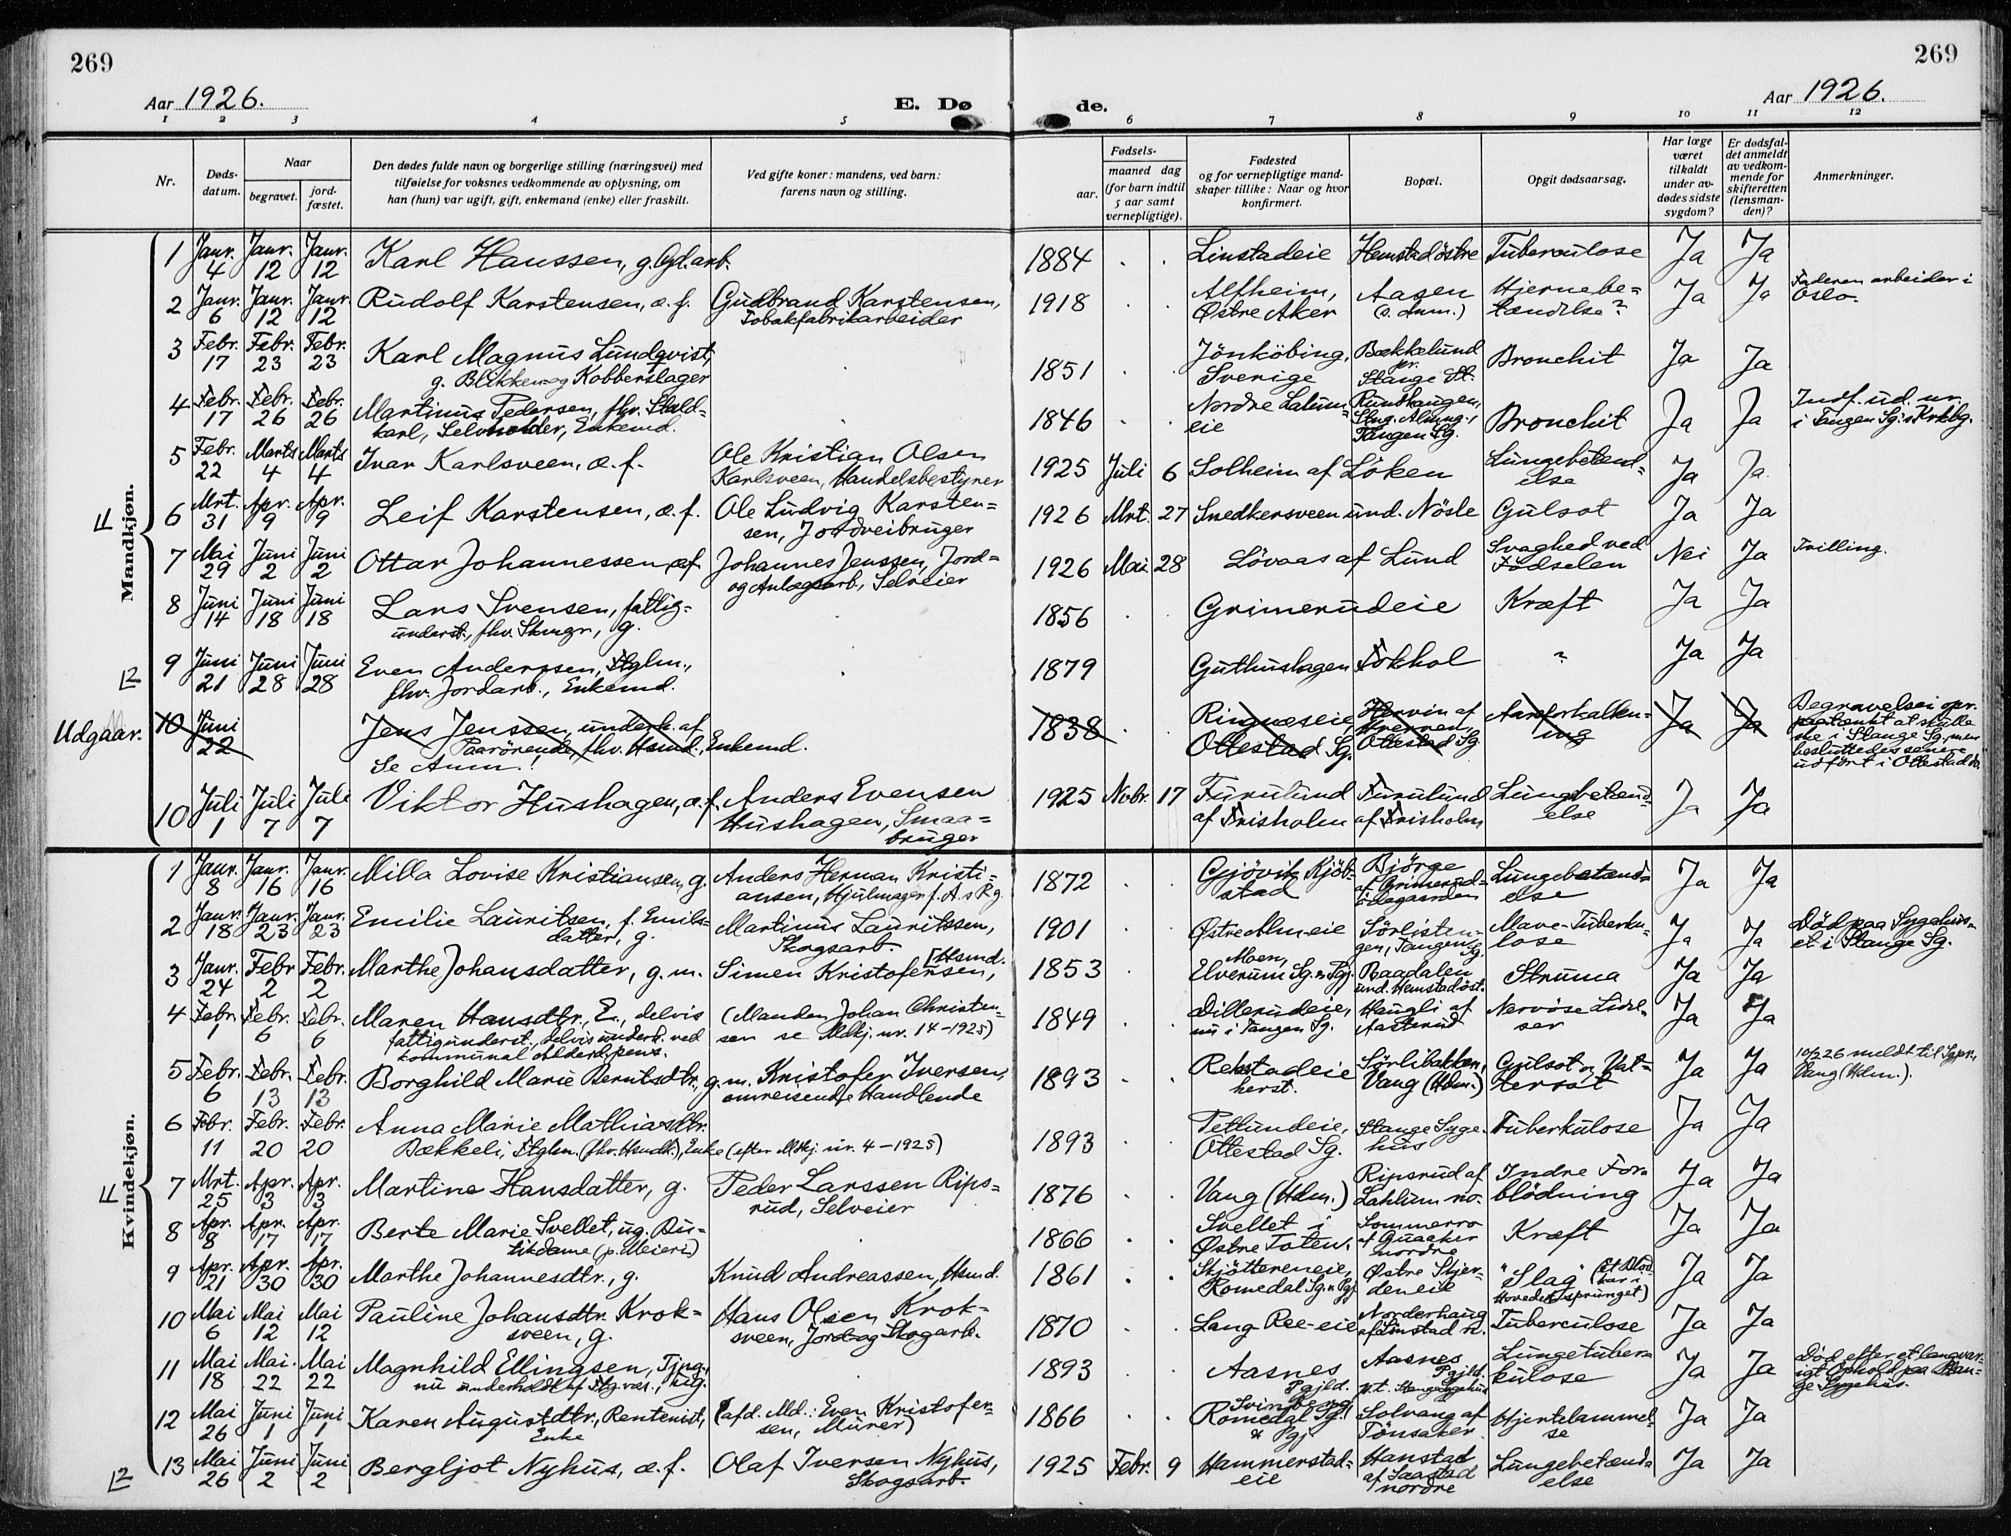 269
269
Aar 1926.
E. Dø
de.
Aar 1926.
1 2 3 4 5 6 7 8 9 10 11 12
Nr.
Døds-
datum.
Naar
begravet.
jord-
fæstet.
Den dødes fulde navn og borgerlige stilling (næringsvei) med
tilføielse for voksnes vedkommende av oplysning, om
han (hun) var ugift, gift, enkemand (enke) eller fraskilt.
Ved gifte koner: mandens, ved barn:
farens navn og stilling.
Fødsels-
aar.
maaned dag
(for barn indtil
5 aar samt
vernepligtige).
Fødested
og for vernepligtige mand-
skaper tillike: Naar og hvor
konfirmert.
Bopæl.
Opgit dødsaarsag.
Har læge
været
tilkaldt
under av-
dødes sidste
sygdom?
Er dødsfal-
det anmeldt
av vedkom-
mende for
skifteretten
(lensman-
den)?
Anmerkninger.
Mandkjøn.
1 Janr. 4 Janr. 12 Janr. 12 Karl Hanssen, g. Gd.arb. 1884 Linstadeie Hemstad østre Tuberculose Ja Ja
2 Janr. 6 Janr. 12 Janr. 12 Rudolf Karstensen, æ. f. Gudbrand Karstensen, 1918 Alfheim, Aasen Hjernebe= Ja Ja Faderen arbeider i
Tobakfabrikarbeider Østre Aker (s. Anm.) tændelse? Oslo.
3 Febr. 17 Febr. 23 Febr. 23 Karl Magnus Lundqvist, 1851 Jönköbing, Bækkelund Bronchit Ja Ja
g. Blikken- og Kobberslager Sverige pr. Stange St.
4 Febr. 17 Febr. 26 Febr. 26 Martinus Pedersen, fhv. Stald- 1846 Nordre Lalum- Rundhaugen, Bronchit Ja Ja Indf. ud. nr.
karl, Selvholder, Enkemd. eie Tangen Sg. i Tangen Sg.s Krkbg.
5 Febr. 22 Marts 4 Marts 4 Ivar Karlsveen, æ. f. Ole Kristian Olsen 1925 Juli 6 Solheim af Löken Lungebetænd- Ja Ja
Karlsveen, Handelsbestyrer else
6 Mrt. 31 Apr. 9 Apr. 9 Leif Karstensen, æ. f. Ole Ludvig Karsten= 1926 Mrt. 27 Smedkersveen und. Nösle Gulsot Ja Ja
sen, Jordveibruger
7 Mai 29 Juni 2 Juni 2 Ottar Johannessen, æf Johannes Jenssen, Jord= 1926 Mai 28 Lövaas af Lund Svaghed ved Nei Ja Tvilling.
og Anlægsarb., Selveier Födselen
8 Juni 14 Juni 18 Juni 18 Lars Svensen, fattig- 1856 Grimerudeie Kræft Ja Ja
underst., fhv. Skmgr., g.
9 Juni 21 Juni 28 Juni 28 Even Anderssen, Stglm., 1879 Guthushagen Fokhol ? Ja Ja
fhv. Jordarb., Enkemd.
Udgaar. 10 Juni 22 Jens Jenssen, underh. af 1838 Ringneseie, Aareforkalkn- Ja Ja Begravelsen opr.
Paarörende, fhv. Hsmd. Enkemd. Ottestad Sg. Ottestad Sg. ing paatænkt at skulle
Se Anm.! ske i Stange Sg., men
besluttedes senere
udført i Ottestad do.
10 Juli 1 Juli 7 Juli 7 Viktor Hushagen, æ. f. Anders Evensen 1925 Nvbr. 17 Furulund Furulund Lungebetænd- Ja Ja
Hushagen, Smaa= af Frisholm af Frisholm else
bruger
Kvindekjøn.
1 Janr. 8 Janr. 16 Janr. 16 Milla Lovise Kristiansen, g. Anders Herman Kristi- 1872 Gjövik Kjöb- Bjørge Lungebetænd- Ja Ja
ansen, Hjulmager stad af Grimerud- else
2 Janr. 18 Janr. 23 Janr. 23 Emilie Lauritsen, f. Emils- Martinus Lauritssen, 1901 Østre Alm-eie Sörlisten- Mave-Tuberku- Ja Ja Död paa Sygehus-
datter, g. Skogsarb. gen, Tangen Sg. lose et i Stange Sg.
3 Janr. 24 Febr. 2 Febr. 2 Marthe Johansdatter, g. m. Simen Kristofersen, [Hsmd. 1853 Moen, Elverum Sg. & Pgj. Baadalen Struma Ja Ja
und. Hemstad øst.
4 Febr. 1 Febr. 6 Febr. 6 Maren Hansdtr., E., delvis (Manden Johan Christen- 1849 Dillerudeie, Haugli af Nervöse Lidel- Ja Ja
fattigunderst., delvis underh. ved sen se Mdkj. nr. 14-1925) nu i Tangen Sg. Aasterud ser
kommunal Alderspens.
5 Febr. 6 Febr. 13 Febr. 13 Borghild Marie Berntsdtr., g. m. Kristofer Iversen, 1893 Rekstadeie Sörlibakken, Gulsot og Vat- Ja Ja 10/2 26 meldt til Sgpr.
omreisende Handlende herst. Vang (Hdm.) tersot Vang (Hdm.).
6 Febr. 11 Febr. 20 Febr. 20 Anna Marie Mathiasdtr. 1893 Petlundeie, Stange Syge- Tuberkulose Ja Ja
Bækkeli, Stglm. (fhv. Hsmdk.), Enke (efter Mdkj. nr. 4-1925) Ottestad Sg. hus
7 Mrt. 25 Apr. 3 Apr. 3 Martine Hansdatter, g. Peder Larssen Rips= 1876 Vang (Hdm.) Ripsrud af Indre For- Ja Ja
rud, Selveier Lahlum no. blödning
8 Apr. 8 Apr. 17 Apr. 17 Berte Marie Svellet, ug. Bu- 1866 Svellet i Sommerro Kræft Ja Ja
tikdame (p. Meieri) Østre Toten. nordre
9 Apr. 21 Apr. 30 Apr. 30 Marthe Johannesdtr., g. Knud Andreassen, Hsmd. 1861 Skjöttereneie, Østre Skjer- "Slag" (Et Blod- Ja Ja
Romedal Sg. & Pgj. deneie kar i Hovedet sprunget)
10 Mai 6 Mai 12 Mai 12 Pauline Johansdtr. Krok= Hans Olsen Krok- 1870 Lang-Ree-eie Norderhaug Tuberculose Ja Ja
sveen, g. sveen, Jord- og Skogarb. af Linstad n.
11 Mai 18 Mai 22 Mai 22 Magnhild Ellingsen, Tjng., 1893 Aasnes Aasnes Lungetuber- Ja Ja Död efter et langvar-
nu underholdt af Ftg.væs., ug. Pgjld. Pgjld. kulose igt Ophold paa Stan-
p.t. Stange Sygehus ge Sygehus.
12 Mai 26 Juni 1 Juni 1 Karen Augustdtr., Rentenist, (afd. Md.: Even Kristofer- 1866 Romedal Sg. Solvang af Hjertelammel- Ja Ja
Enke sen, Murer) & Pgj. Tönsaker se
13 Mai 26 Juni 2 Juni 2 Bergljot Nyhus, æ. f. Olaf Iversen Nyhus, 1925 Febr. 9 Hammerstad- Hanstad Lungebetænd- Ja Ja
Skogsarb. eie af Saastad nordre else